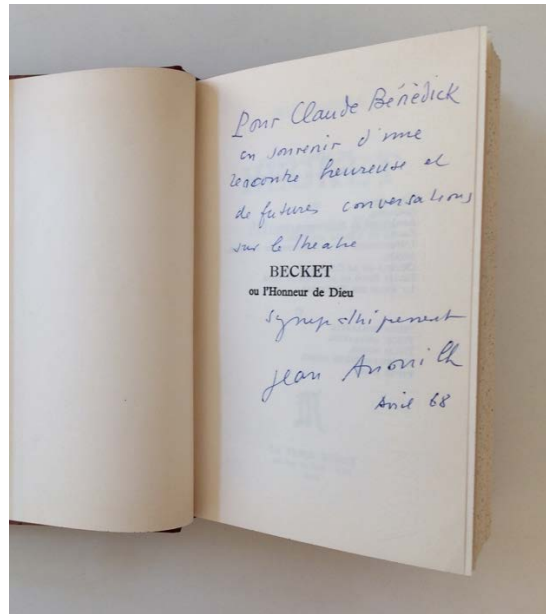 Pour Claude Bénédick
en souvenir d'une
rencontre heureuse et
de futures conversations
sur le theatre
BECKET
ou l'Honneur de Dieu
sympathiquement
Jean Anouilh
Avril 68